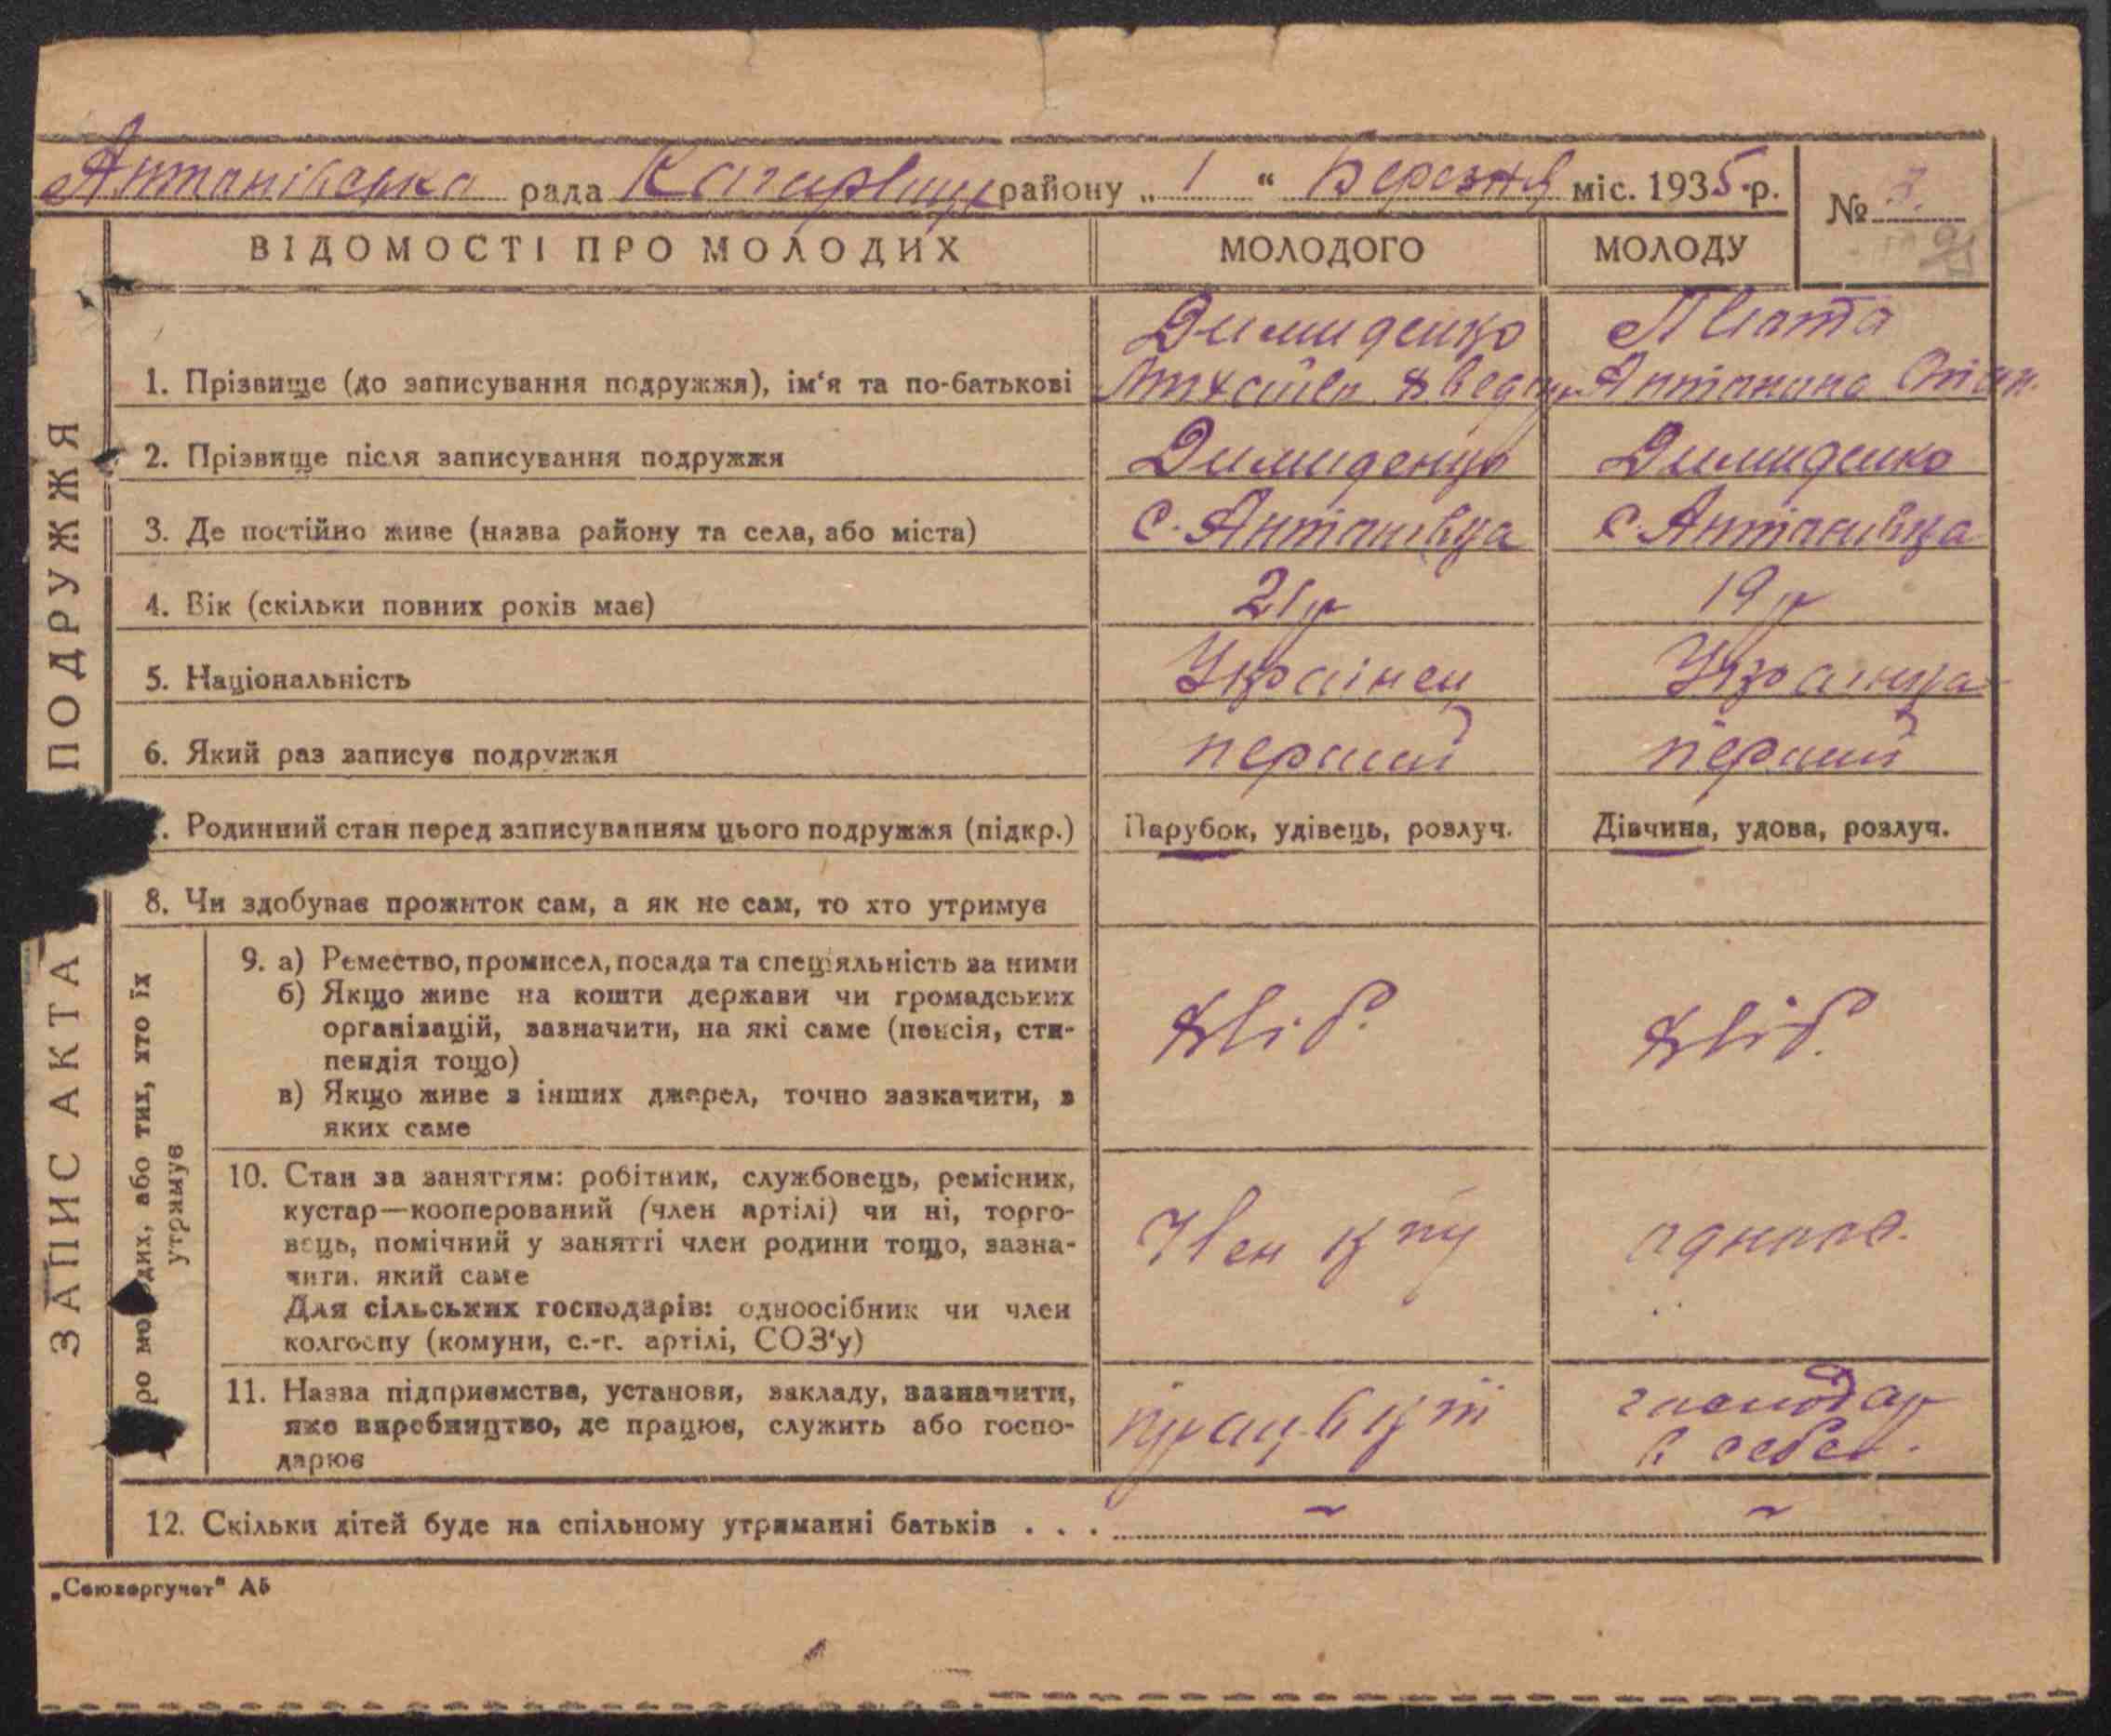 Антонівська рада Кагарлиц району „ 1 “ Березня міс. 1935 р.
№ 3.
ВІДОМОСТІ ПРО МОЛОДИХ
МОЛОДОГО
МОЛОДУ
1. Прізвище (до записування подружжя), ім'я та по-батькові
Димиденко
Михайло Хведор
Плюта
Антонина Степ.
2. Прізвище після записування подружжя
Димиденко
Димиденко
3. Де постійно живе (назва району та села, або міста)
с. Антонівка
с. Антонівка
4. Вік (скільки повних років має)
21 р
19 р
5. Національність
Українец
Українка
6. Який раз записує подружжя
перший
перший
. Родинний стан перед записуванням цього подружжя (підкр.)
Парубок, удівець, розлуч.
Дівчина, удова, розлуч.
8. Чи здобуває прожиток сам, а як не сам, то хто утримує
9. а) Ремество, промисел, посада та спеціяльність за ними
б) Якщо живе на кошти держави чи громадських
організацій, зазначити, на які саме (пенсія, сти-
пендія тощо)
в) Якщо живе з інших джерел, точно зазкачити, з
яких саме
Хліб.
Хліб.
10. Стан за заняттям: робітник, службовець, ремісник,
кустар—кооперований (член артілі) чи ні, торго-
вець, помічний у занятті член родини тощо, зазна-
чити, який саме
Для сільських господарів: одноосібник чи член
колгоспу (комуни, с.-г. артілі, СОЗ'у)
Член
одноос.
11. Назва підприємства, установи, закладу, зазначити,
яке виробництво, де працює, служить або госпо-
дарює
прац. в
господар
в себе.
12. Скільки дітей буде на спільному утриманні батьків . . .
~
~
ЗАПИС АКТА
ПОДРУЖЖЯ
ро мо дих, або тих, хто їх
утримує
„Союзоргучет“ А5